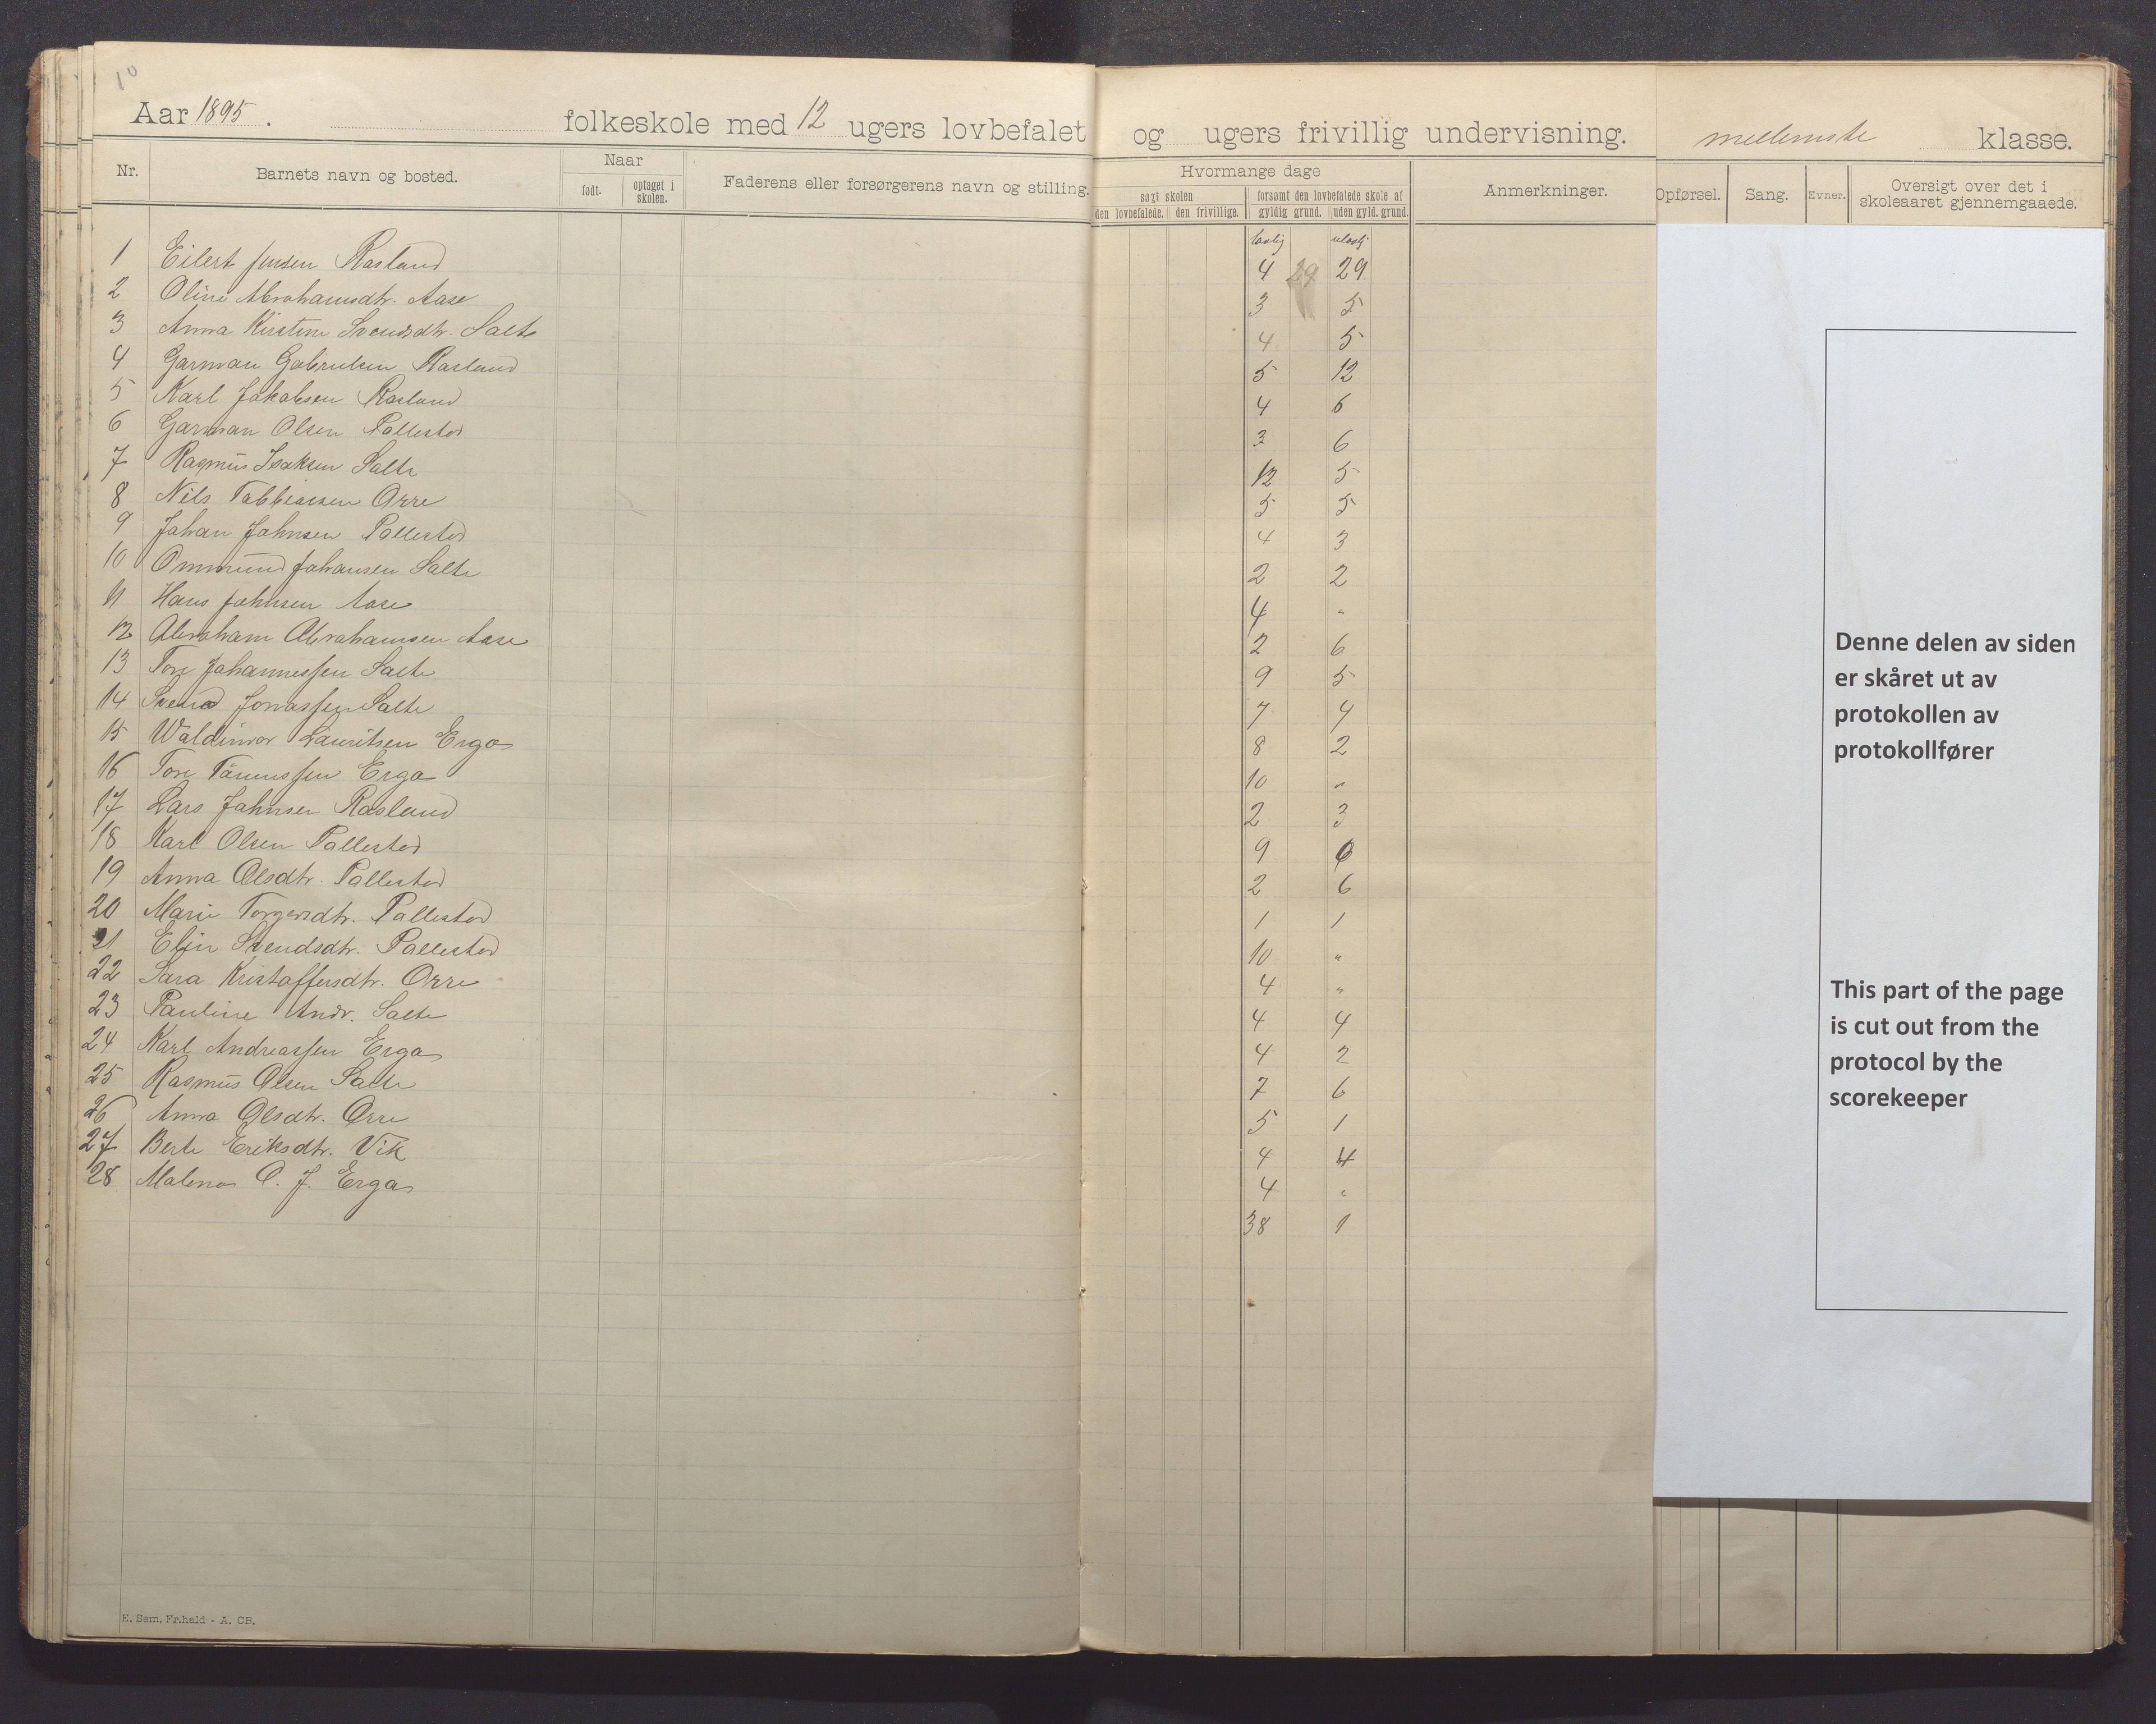 10
Aar 1895. folkeskole med 12 ugers lovbefalet og ugers frivillig undervisning. mellemste klasse.
Nr. Barnets navn og bosted. Naar født. optaget i skolen. Faderens eller forsørgerens navn og stilling. Hvormange dage søgt skolen den lovbefalede. den frivillige. forsømt den lovbefalede skole af gyldig grund. uden gyld. grund. Anmerkninger. Opførsel. Sang. Evner. Oversigt over det i skoleaaret gjennemgaaede.
lovlig ulovlig
1 Eilert Jensen Rasland 4 29 29
2 Oline Abrahamsdtr. Aase 3 5
3 Anna Kirstine Svendsdtr. Salte 4 5
4 Garman Gabrielsen Rasland 5 12
5 Karl Jakobsen Rasland 4 6
6 Garman Olsen Pallestad 3 6
7 Rasmus Isaksen Salte 12 5
8 Nils Tobbiassen Orre 5 5
9 Johan Johnsen Pollestad 4 3
10 Ommund Johansen Salte 2 2
11 Hans Johnsen Aase 4 "
12 Abraham Abrahamsen Aase 2 6
13 Tore Johannessen Salte 9 5
14 Svend Jonassen Salte 7 4
15 Waldimar Lauritsen Erga 8 2
16 Tore Tønnessen Erga 10 "
17 Lars Johnsen Rasland 2 3
18 Karl Olsen Pallestad 9
19 Anna Olsdtr. Pallestad 2 6
20 Marie Torgersdtr. Pallestad 1 1
21 Elin Svendsdtr. Pallestad 10 "
22 Sara Kristoffersdtr. Orre 4 "
23 Pauline Andr. Salte 4 4
24 Karl Andreassen Erga 4 2
25 Rasmus Olsen Salte 7 6
26 Anna Olsdtr. Orre 5 1
27 Berte Eriksdtr. Vik 4 4
28 Malena O. J. Erga 4 "
38 1
Denne delen av siden
er skåret ut av
protokollen av
protokollfører
This part of the page
is cut out from the
protocol by the
scorekeeper
E. Sem, Fr.hald - A. CB.